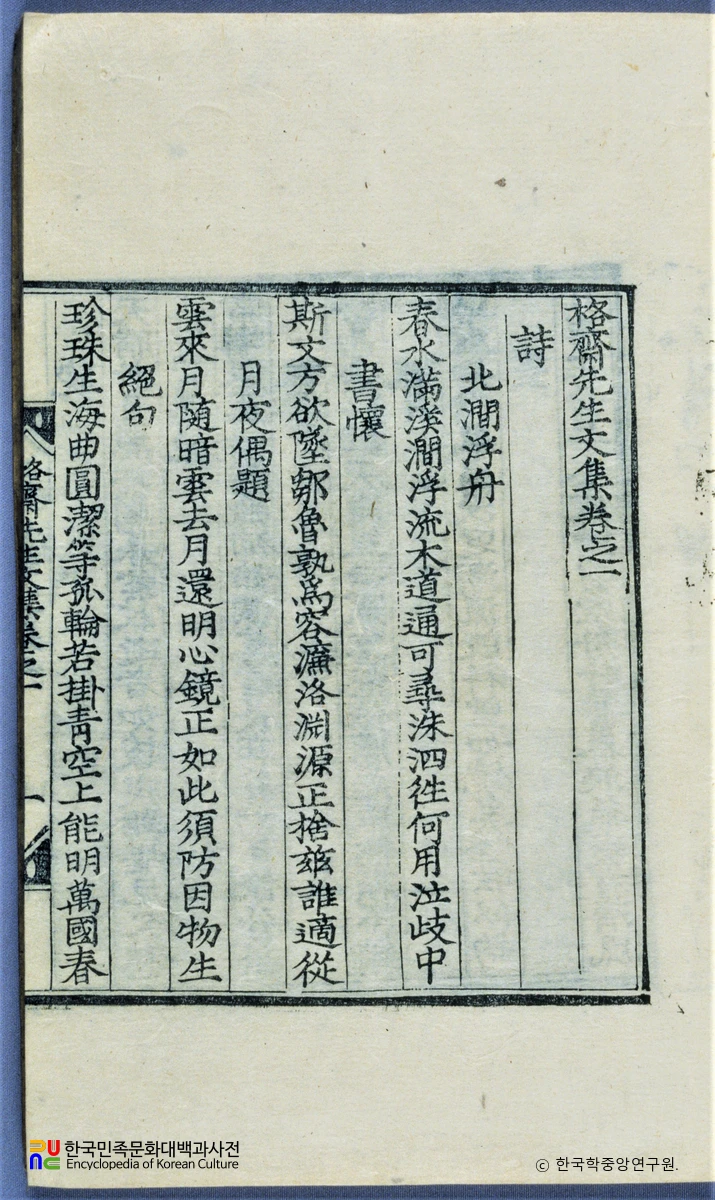 格齋先生文集卷之一
詩
北澗浮舟
春水滿溪澗浮流木道通可尋洙泗徃何用泣歧中
書懷
斯文方欲墜鄒魯孰爲容濂洛淵源正捨玆誰適從
月夜偶題
雲來月随暗雲去月還明心鏡正如此須防因物生
絕句
珍珠生海曲圓潔等孤輪若掛靑空上能明萬國春
格齋先生文集卷之一
一
한국민족문화대백과사전
Encyclopedia of Korean Culture
© 한국학중앙연구원.